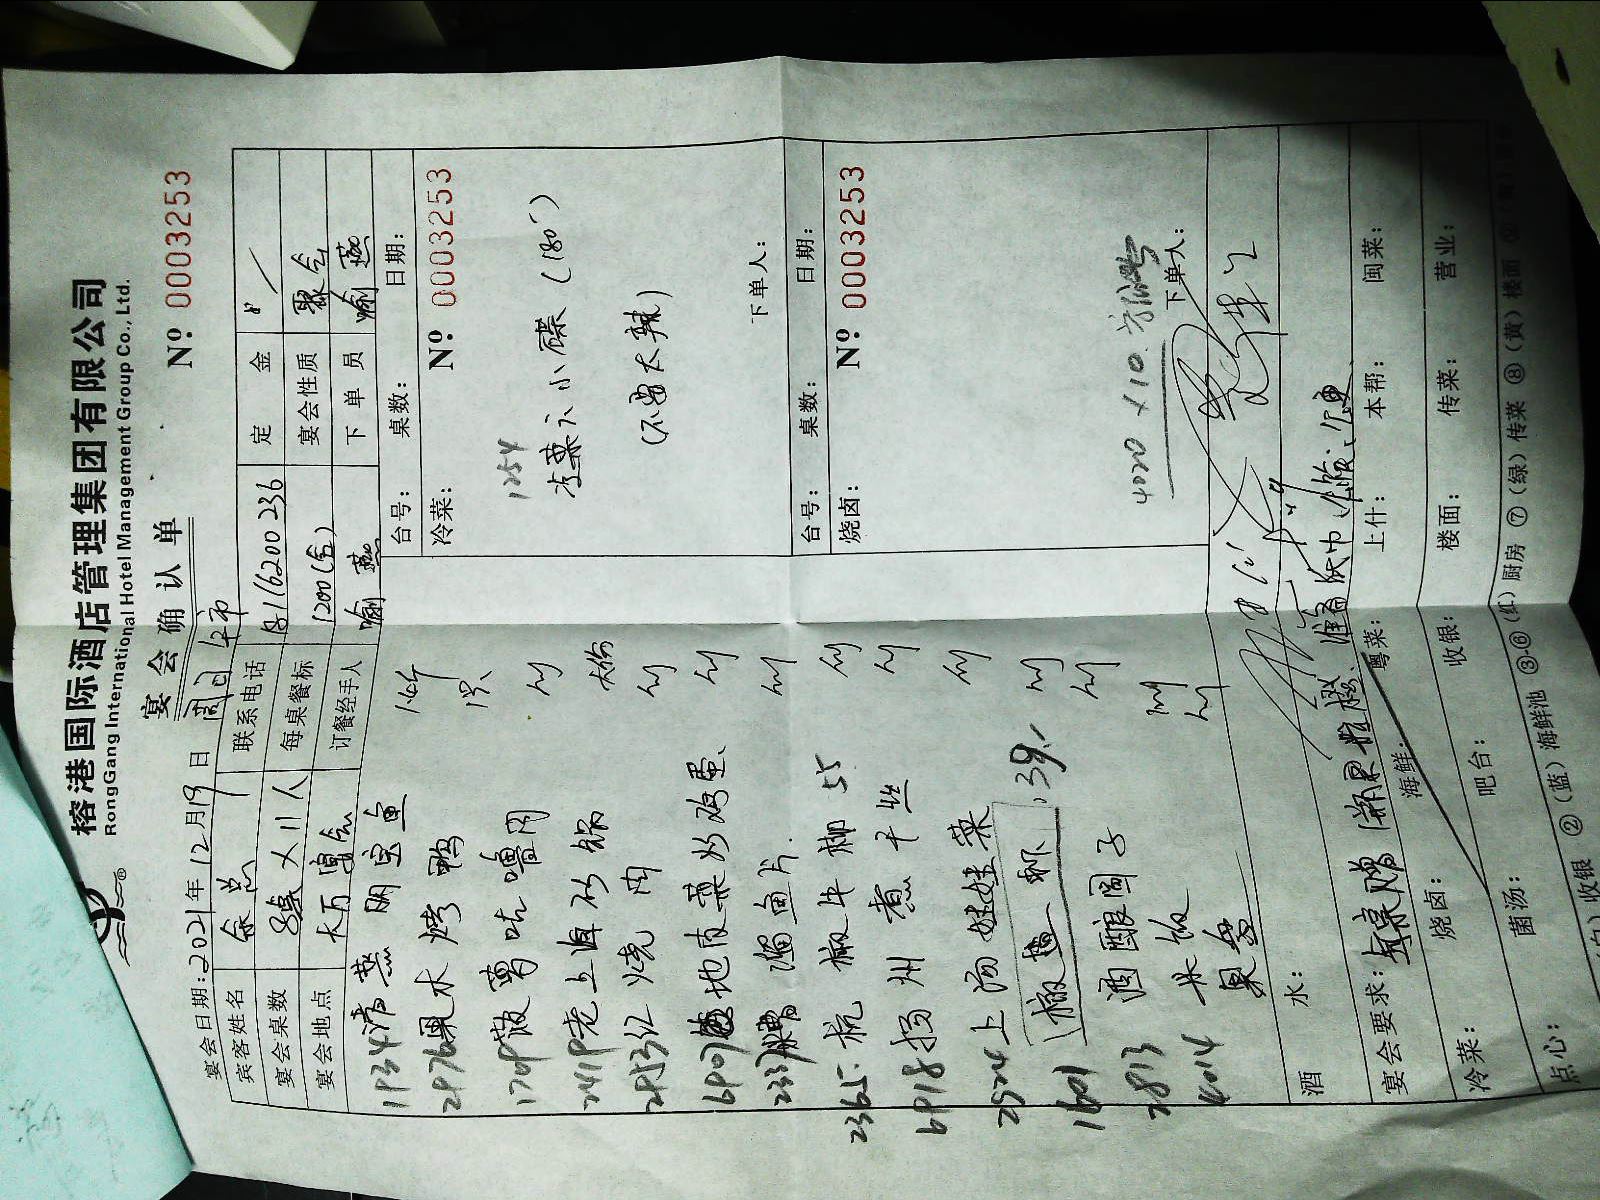 榕港国际酒店管理集团有限公司
RongGang International Hotel Management Group Co., Ltd.
宴会确认单
№ 0003253
宴会日期:2021年12月19日 周日 午市
宾客姓名 余总 联系电话 定金
宴会桌数 8桌×11人 每桌餐标 1200(含) 宴会性质 聚会
宴会地点 大万宴会 订餐经手人 喻燕 下单员 喻燕
台号: 桌数: 日期:
冷菜: № 0003253
1254
凉菜六小碟(180-)
(不要太辣)
下单人:
台号: 桌数: 日期:
烧卤: № 0003253
4020 ×10
下单人:
1934 清蒸
2976 果木烤鸭
1709 菠萝咕噜肉
2419 老上海砂锅 大份
2953 红烧肉
6907 地皮菜炒鸡蛋
2337 糟溜鱼片
2365 杭椒牛柳 55
6918 扬州煮干丝
2524 上汤娃娃菜
1601 39.-
2813 酒酿圆子
4014 米饭
果盘
酒水:
宴会要求:
冷菜: 烧卤: 海鲜: 粤菜: 上什: 本帮: 闽菜:
点心: 菌汤: 吧台: 收银: 楼面: 传菜: 营业:
(白)收银 ②(蓝)海鲜池 ③-⑥(红)厨房 ⑦(绿)传菜 ⑧(黄)楼面